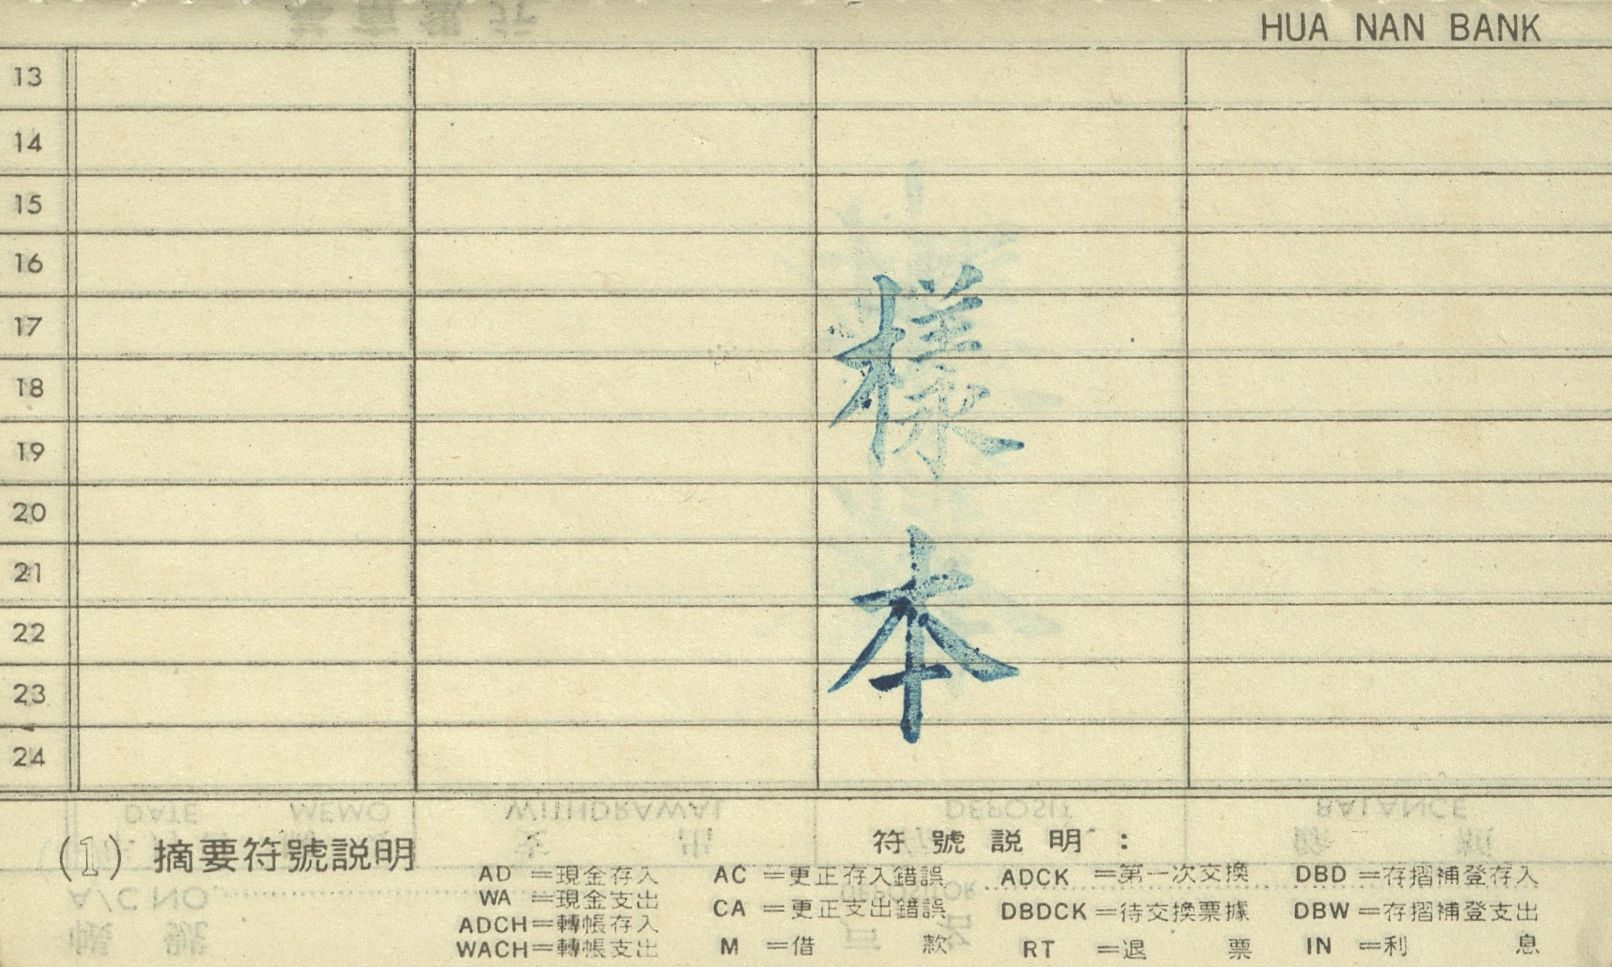 HUA NAN BANK
13
14
15
16
17
18
19
20
21
22
23
24
樣本
(1) 摘要符號説明
符號説明：
AD ＝現金存入
WA ＝現金支出
ADCH＝轉帳存入
WACH＝轉帳支出
AC ＝更正存入錯誤
CA ＝更正支出錯誤
M ＝借款
ADCK ＝第一次交換
DBDCK＝待交換票據
RT ＝退票
DBD ＝存摺補登存入
DBW ＝存摺補登支出
IN ＝利息
DATE
MEMO
WITHDRAWAL
DEPOSIT
BALANCE
A/C NO.